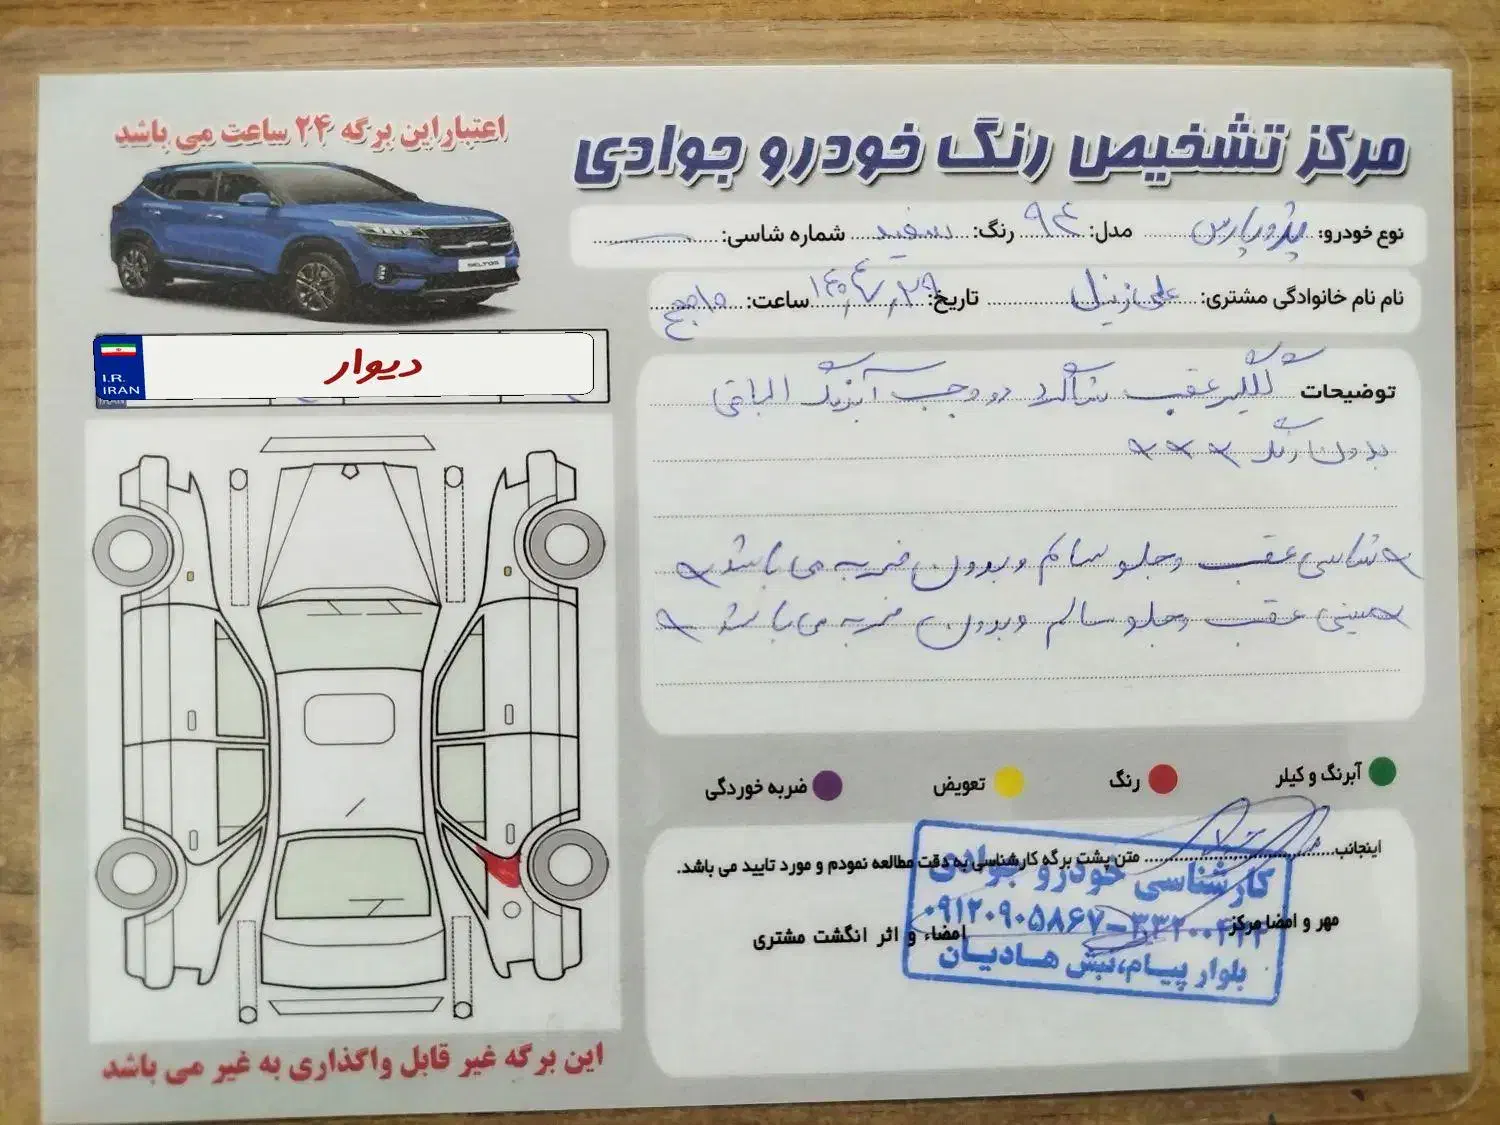 مرکز تشخیص رنگ خودرو جوادی
اعتبار این برگه ۲۴ ساعت می باشد
SELTOS
نوع خودرو: پژو پارس مدل: ۹۴ رنگ: سفید شماره شاسی:
نام نام خانوادگی مشتری: علی تاریخ: ساعت:
I.R.
IRAN
دیوار
توضیحات گلگیر عقب شاگرد دو وجب آبرنگ الباقی
بدون رنگ
شاسی عقب و جلو سالم و بدون ضربه می باشد
سینی عقب و جلو سالم و بدون ضربه می باشد
آبرنگ و کیلر
رنگ
تعویض
ضربه خوردگی
اینجانب متن پشت برگه کارشناسی به دقت مطالعه نمودم و مورد تایید می باشد.
کارشناسی خودرو جوادی
مهر و امضا مرکز
امضاء و اثر انگشت مشتری
۰۹۱۲۰۹۰۵۸۶۷-
بلوار پیام، نبش هادیان
این برگه غیر قابل واگذاری به غیر می باشد